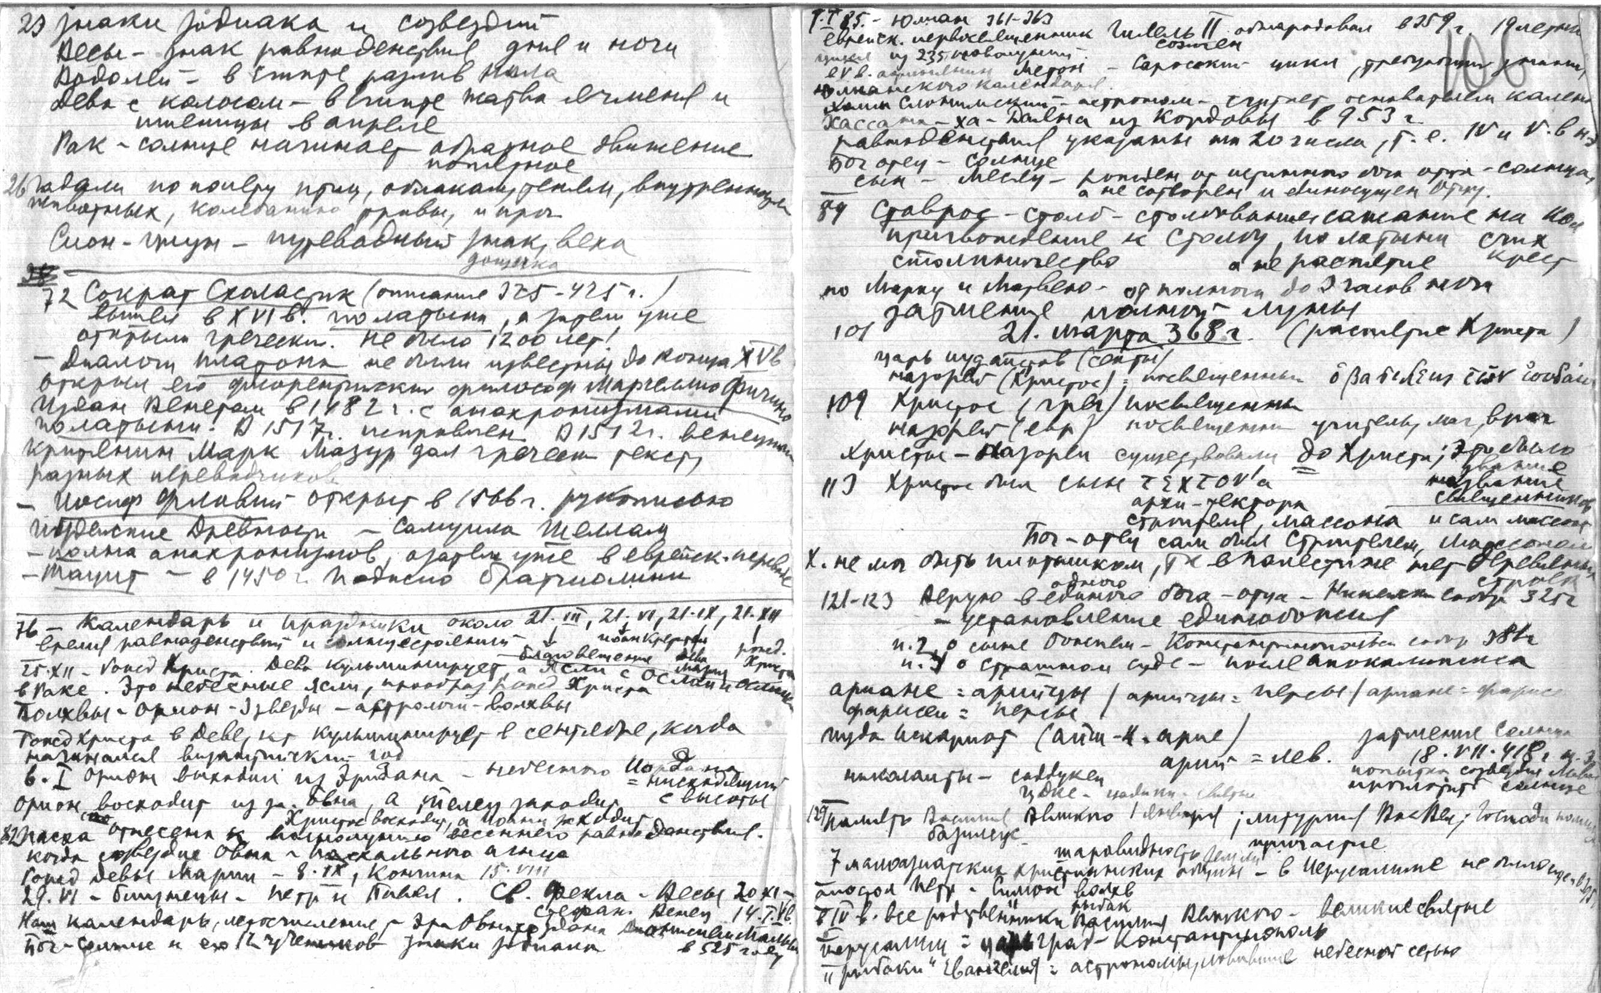 23 знаки зодиака и созвездий
Весы - знак равноденствия дня и ночи
Водолей - в Египте разлив Нила
Дева с колосом - в Египте жатва ячменя и
пшеницы в апреле
Рак - солнце начинает обратное движение
попятное
26 Гадали по полету птиц, облакам, теням, внутренностям
животных, колебанию травы, и проч
Сион - циун - путеводный знак, веха
дощечка
72 Сократ Схоластик (описание 325-425 г.)
вышел в XVI в. по латыни, а затем уже
открыли гречески. Не было 1200 лет!
- Диалоги Платона не были известны до конца XV в
открыл его флорентийский философ Марчелино Фичино
Издан Венетом в 1482 г. с анахронизмами
по латыни. В 1517 г. исправлен В 1512 г. венецианский
критянин Марк Мазур дал греческ текст,
разных переводчиков
- Иосиф Флавий открыт в 1566 г. рукописью
Иудейские Древности - Самуила Шеллам
- полна анахронизмов, а затем уже в еврейск. переводе
- Тацит - в 1450 г. Поджио Браччиолини
76 - Календарь и праздники около 21.III, 21.VI, 21.IX, 21.XII
время равноденствий и солнцестояний
благовещение
25.XII - Рожд Христа. Дева кульминирует, а Ясли с Ослом и Ослицей
в Раке. Это небесные ясли, прообраз рожд Христа
Волхвы - Орион - Звезды - астрологи - волхвы
Рожд Христа в Деве, кт кульминирует в сентябре, когда
начинался византийский год
6.I Орион выходил из Эридана - небесного Иордана
= нисходящий
с высоты
Орион восходит из за Овна, а Телец заходит
Христос восходит, а Иоанн заходит
82 Пасха отнесена к полнолунию весеннего равноденствия.
когда созвездие Овна - пасхального агнца
Рожд Девы Марии - 8.IX, Кончина 15.VIII
29.VI - близнецы - Петр и Павел. Св. Фекла - Весы 20 XI -
Стефан. Венец 14.I.VI в.
Наш календарь, летосчисление - Эра Овна создана Дионисием Малым
Бог - Солнце и его 12 учеников знаки зодиака в 525 году
106
Т.I 85. - Юлиан 361-363
еврейск. первосвященник Гилель II обнародовал в 359 г. 19 летний
цикл из 235
в V в. Метон - Саросский цикл, требующий знания,
юлианского календаря.
Хаим Слонимский - астроном - считает основателем календ
Хассата - ха - Даяна из Кордовы в 953 г
равноденствия указаны на 20 числа, т.е. IV и V в н.э
Бог отец - солнце
сын - месяц - рожден от истинного бога отца - солнца,
а не сотворен и единосущен Отцу.
89 Ставрос - столб - столбование, сажание на кол
пригвождение к столбу, по латыни crux
столпничество а не распятие крест
по Марку и Матвею - от полночи до 3 часов ночи
затмение полной луны
101 21. марта 368 г. (распятие Христа)
царь иудаистов (секты)
назорей (Христос) = посвященный
109 Христос (греч) посвященный
назорей (евр) посвященный учитель, маг, врач
Христы - Назореи существовали до Христа; это было
звание
113 Христос был сыном ΤΕΧΤΟΥ'а название
архи-тектора священников
строителя, массона и сам массон
Бог-отец сам был Строителем, Массоном
Х. не мог быть плотником, тк в Палестине нет деревянных
строек
121-123 Верую в единого бога - отца - Никейск собор 325 г
одного
- установление единобожия
п.2 о сыне Божием - Константинопольск собор 381 г
п.3 о страшном суде - после апокалипсиса
ариане = арийцы / арийцы = персы / ариане = фарисе
фарисеи = персы
Иуда Искариот (аиш-к. арие) затмение Солнца
арий = лев. 18.VII.418 г н.э
николаиты - саддукеи попытка созвездия Льва
проглотить солнце
129 Память Василия Великого 1 января; литургия Вас Вел; Господи помилуй
базилеус причастие
шаровидность Земли
7 малоазиатских христианских общин - в Иерусалиме не было еще
апостол Петр - Симон волхв
рыбак
В IV в. все родственники Василия Великого - великие святые
Иерусалим = царьград - Константинополь
"рыбаки" Евангелия = астрономы, ловившие небесной сетью